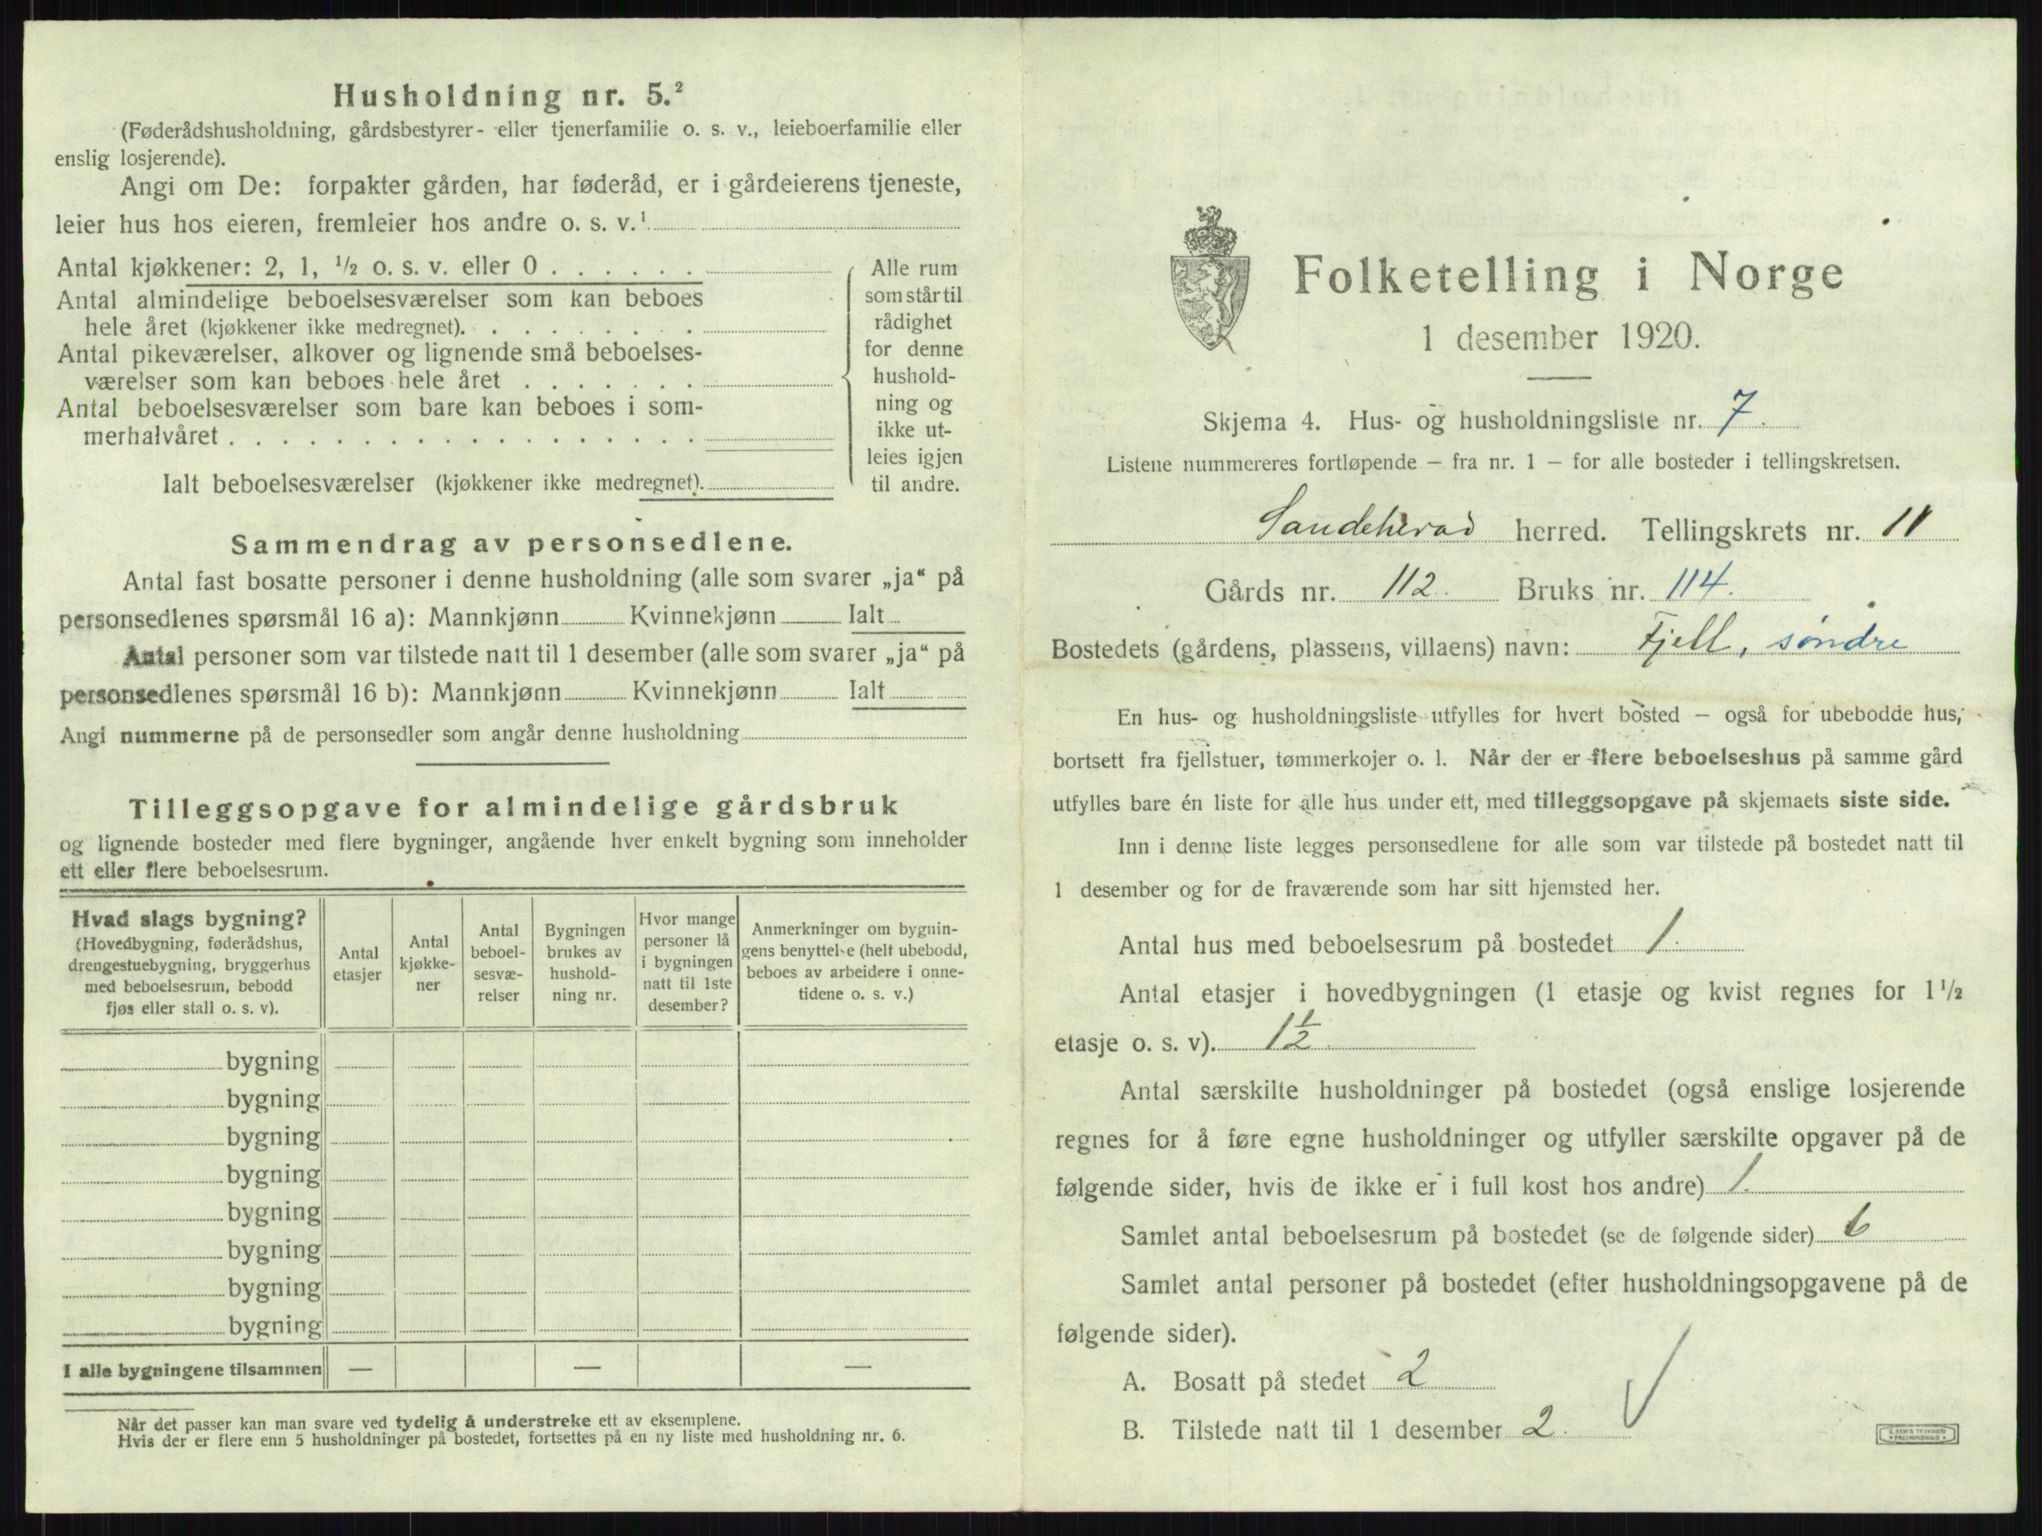 Husholdning nr. 5.²
(Føderådshusholdning, gårdsbestyrer- eller tjenerfamilie o. s. v., leieboerfamilie eller
enslig losjerende).
Angi om De: forpakter gården, har føderåd, er i gårdeierens tjeneste,
leier hus hos eieren, fremleier hos andre o. s. v.¹
Antal kjøkkener: 2, 1, ½ o. s. v. eller 0 . . . . . .
Antal almindelige beboelsesværelser som kan beboes
hele året (kjøkkener ikke medregnet). . . . . . . . .
Antal pikeværelser, alkover og lignende små beboelses-
værelser som kan beboes hele året . . . . . . .
Antal beboelsesværelser som bare kan beboes i som-
merhalvåret . . . . . . . . . . . . . . . . . .
Ialt beboelsesværelser (kjøkkener ikke medregnet).
Alle rum
som står til
rådighet
for denne
hushold-
ning og
ikke ut-
leies igjen
til andre.
Sammendrag av personsedlene.
Antal fast bosatte personer i denne husholdning (alle som svarer „ja“ på
personsedlenes spørsmål 16 a): Mannkjønn Kvinnekjønn Ialt
Antal personer som var tilstede natt til 1 desember (alle som svarer „ja“ på
personsedlenes spørsmål 16 b): Mannkjønn Kvinnekjønn Ialt
Angi nummerne på de personsedler som angår denne husholdning
Tilleggsopgave for almindelige gårdsbruk
og lignende bosteder med flere bygninger, angående hver enkelt bygning som inneholder
ett eller flere beboelsesrum.
Hvad slags bygning?
(Hovedbygning, føderådshus,
drengestuebygning, bryggerhus
med beboelsesrum, bebodd
fjøs eller stall o. s. v).
Antal
etasjer
Antal
kjøkke-
ner
Antal
beboel-
sesvæ-
relser
Bygningen
brukes av
hushold-
ning nr.
Hvor mange
personer lå
i bygningen
natt til 1ste
desember?
Anmerkninger om bygnin-
gens benyttelse (helt ubebodd,
beboes av arbeidere i onne-
tidene o. s. v.)
bygning
bygning
bygning
bygning
bygning
bygning
bygning
bygning
I alle bygningene tilsammen — — —
Når det passer kan man svare ved tydelig å understreke ett av eksemplene.
Hvis der er flere enn 5 husholdninger på bostedet, fortsettes på en ny liste med husholdning nr. 6.
Folketelling i Norge
1 desember 1920.
Skjema 4. Hus- og husholdningsliste nr. 7.
Listene nummereres fortløpende – fra nr. 1 – for alle bosteder i tellingskretsen.
Sandeherad herred. Tellingskrets nr. 11
Gårds nr. 112. Bruks nr. 114.
Bostedets (gårdens, plassens, villaens) navn: Fjell, søndre
En hus- og husholdningsliste utfylles for hvert bosted – også for ubebodde hus,
bortsett fra fjellstuer, tømmerkojer o. l. Når der er flere beboelseshus på samme gård
utfylles bare én liste for alle hus under ett, med tilleggsopgave på skjemaets siste side.
Inn i denne liste legges personsedlene for alle som var tilstede på bostedet natt til
1 desember og for de fraværende som har sitt hjemsted her.
Antal hus med beboelsesrum på bostedet 1.
Antal etasjer i hovedbygningen (1 etasje og kvist regnes for 1½
etasje o. s. v). 1½.
Antal særskilte husholdninger på bostedet (også enslige losjerende
regnes for å føre egne husholdninger og utfyller særskilte opgaver på de
følgende sider, hvis de ikke er i full kost hos andre) 1.
Samlet antal beboelsesrum på bostedet (se de følgende sider) 6
Samlet antal personer på bostedet (efter husholdningsopgavene på de
følgende sider).
A. Bosatt på stedet 2
B. Tilstede natt til 1 desember 2.